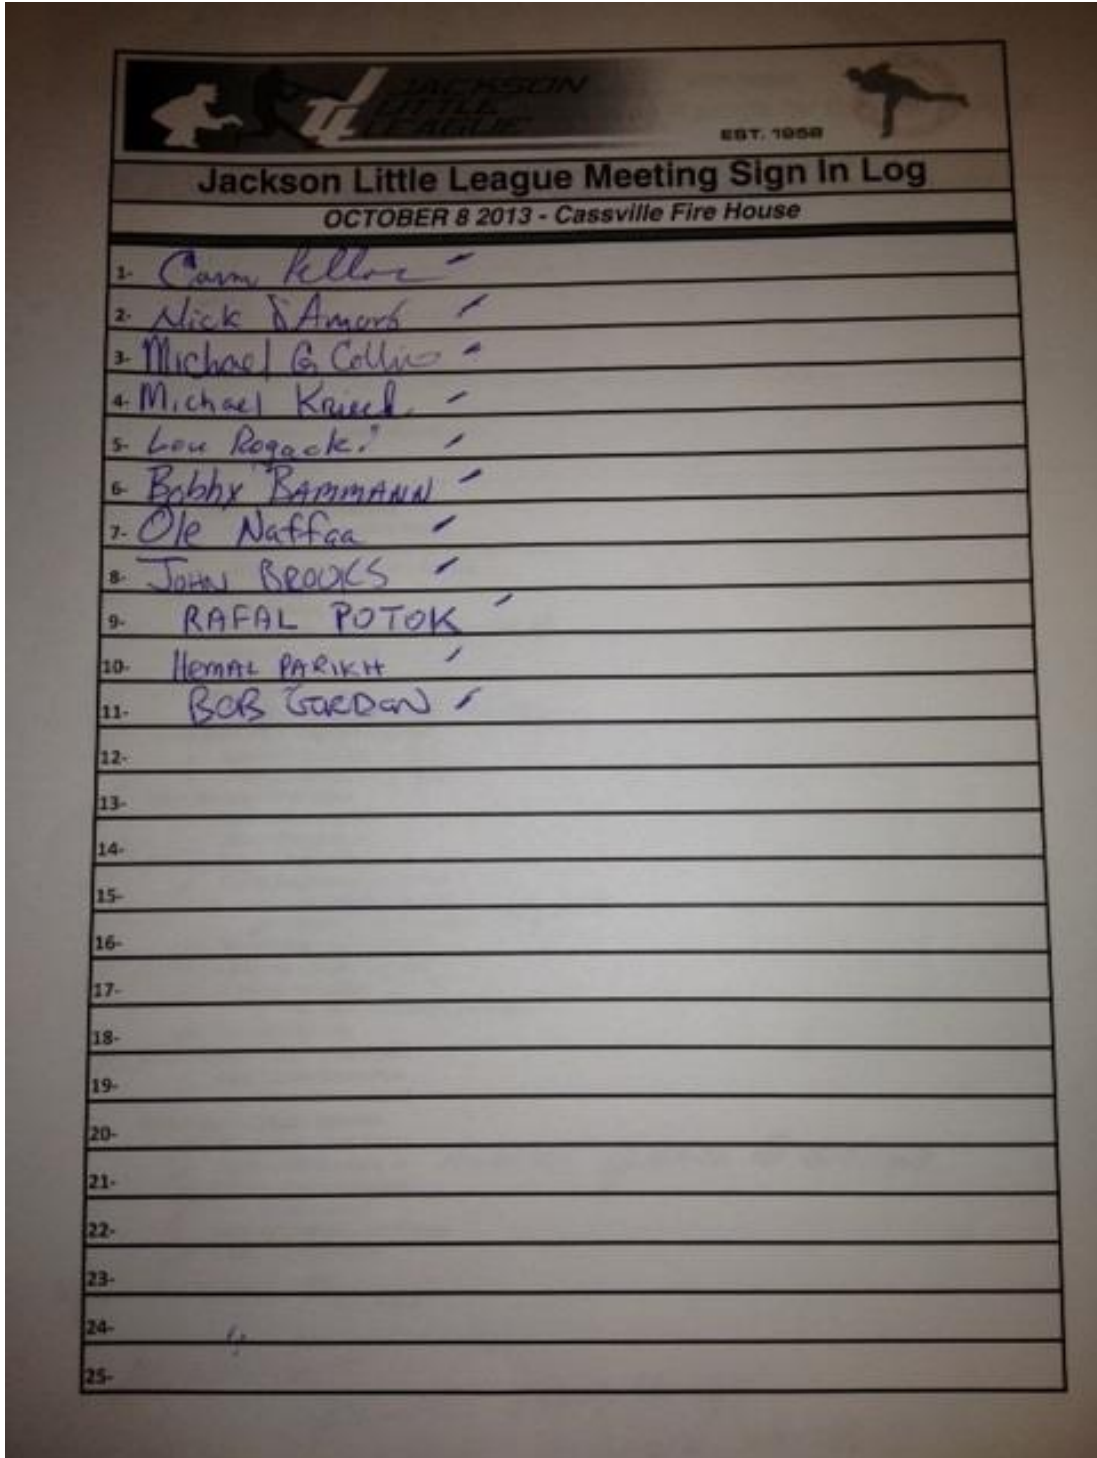 JACKSON
LITTLE
LEAGUE
EST. 1958
Jackson Little League Meeting Sign In Log
OCTOBER 8 2013 - Cassville Fire House
1-
2- Nick D'Amore
3- Michael G Collins
4- Michael
5- Lou Rogacki
6- Bobby BAMMANN
7- Ole Naffaa
8- JOHN BROOKS
9- RAFAL POTOK
10- HEMAL PARIKH
11- BOB GORDON
12-
13-
14-
15-
16-
17-
18-
19-
20-
21-
22-
23-
24-
25-